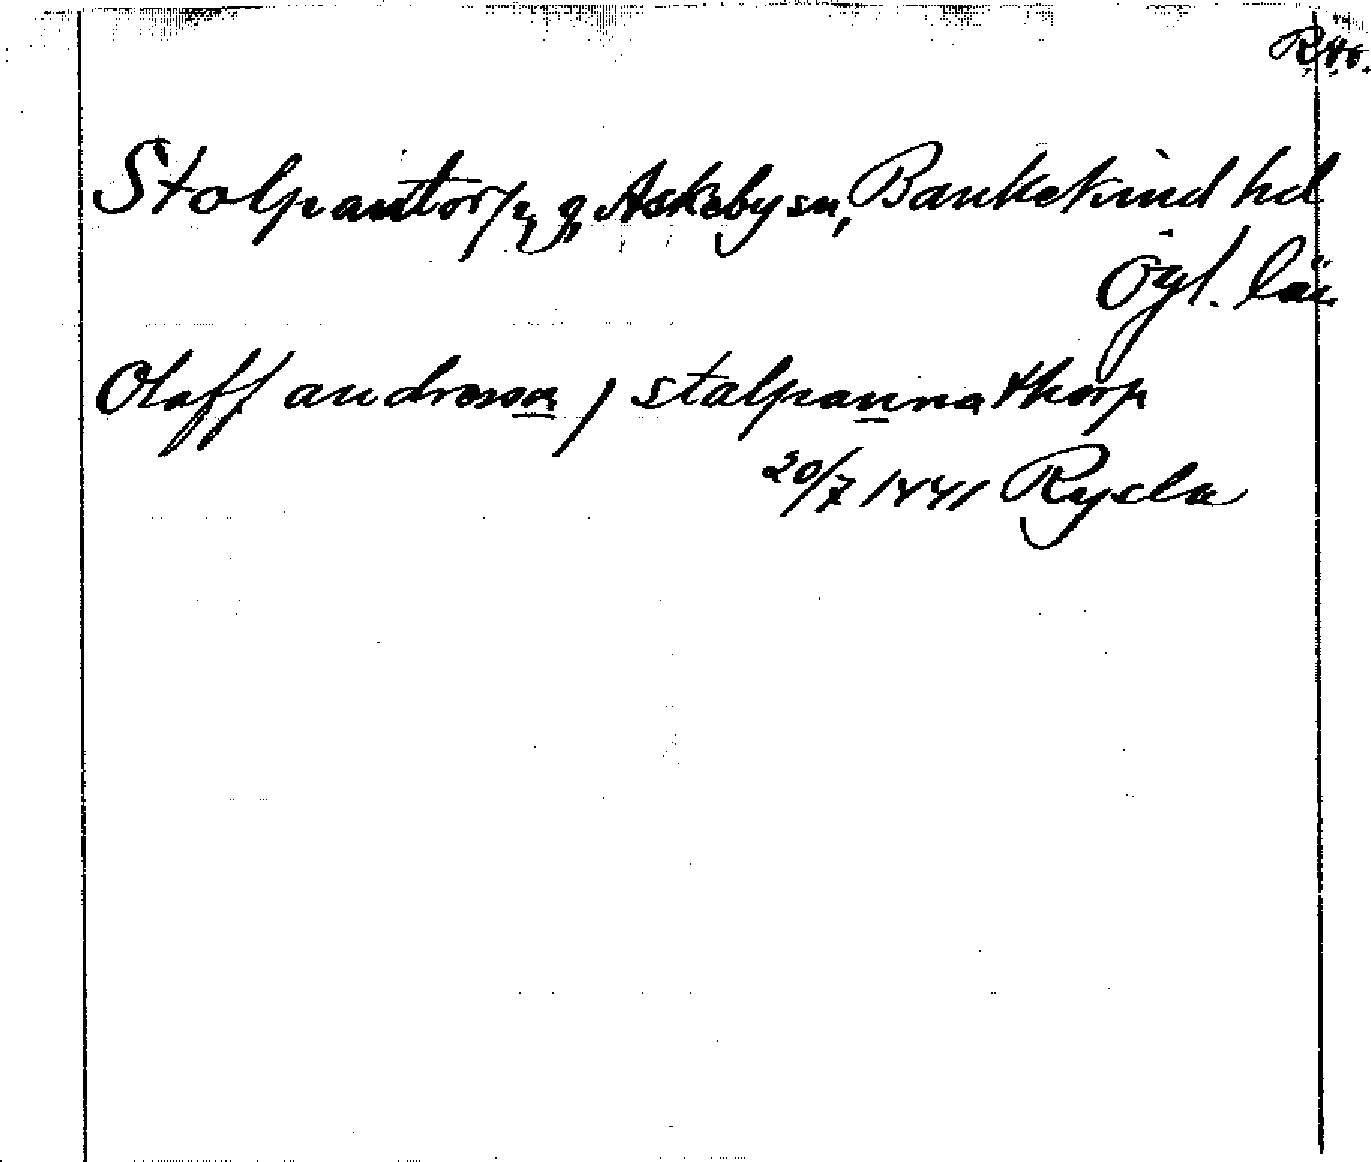 R.Ä.
Stolpantorp, g, Askeby sn, Bankekind hd
Ögl. län
Olaff andresson j stalpanna thorp
20/7 1441 Ryda